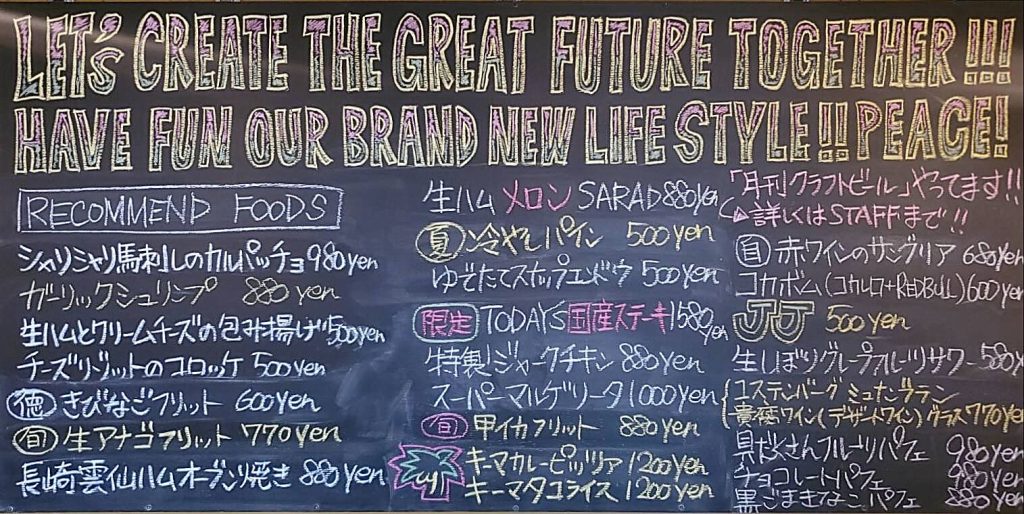 LET'S CREATE THE GREAT FUTURE TOGETHER!!!
HAVE FUN OUR BRAND NEW LIFE STYLE!! PEACE!
RECOMMEND FOODS
シャリシャリ馬刺しのカルパッチョ 980yen
ガーリックシュリンプ 880yen
生ハムとクリームチーズの包み揚げ 500yen
チーズリゾットのコロッケ 500yen
徳 きびなごフリット 600yen
旬 生アナゴフリット 770yen
長崎雲仙ハムオーブン焼き 880yen
生ハムメロン SARAD 880yen
夏 冷やしパイン 500yen
ゆでたてスナップエンドウ 500yen
限定 TODAYS国産ステーキ 1580yen
特製!ジャークチキン 880yen
スーパーマルゲリータ 1000yen
旬 甲イカフリット 880yen
キーマカレーピッツァ 1200yen
キーマタコライス 1200yen
「月刊クラフトビール」やってます!!
詳しくはSTAFFまで!!
自 赤ワインのサングリア 680yen
コカボム(コカレロ+REDBULL) 600yen
JJ 500yen
生しぼりグレープフルーツサワー 580y
コステンバーグ ミュナングラン
貴腐ワイン(デザートワイン)グラス 770yen
具だくさんフルーツパフェ 980yen
チョコレートパフェ 980yen
黒ごまきなこパフェ 880yen